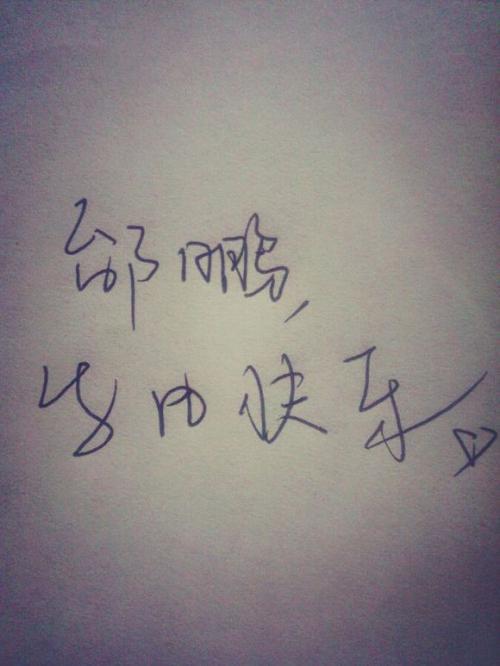 邰鹏,
生日快乐。